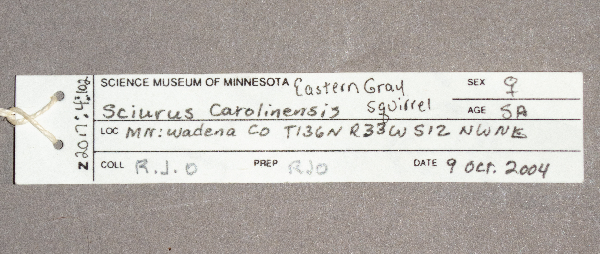 SCIENCE MUSEUM OF MINNESOTA Eastern Gray SEX ♀
Sciurus Carolinensis Squirrel AGE SA
LOC MN: Wadena Co T136N R33W S12 NWNE
COLL R.J.O PREP RJO DATE 9 Oct. 2004
Z2017:4:102